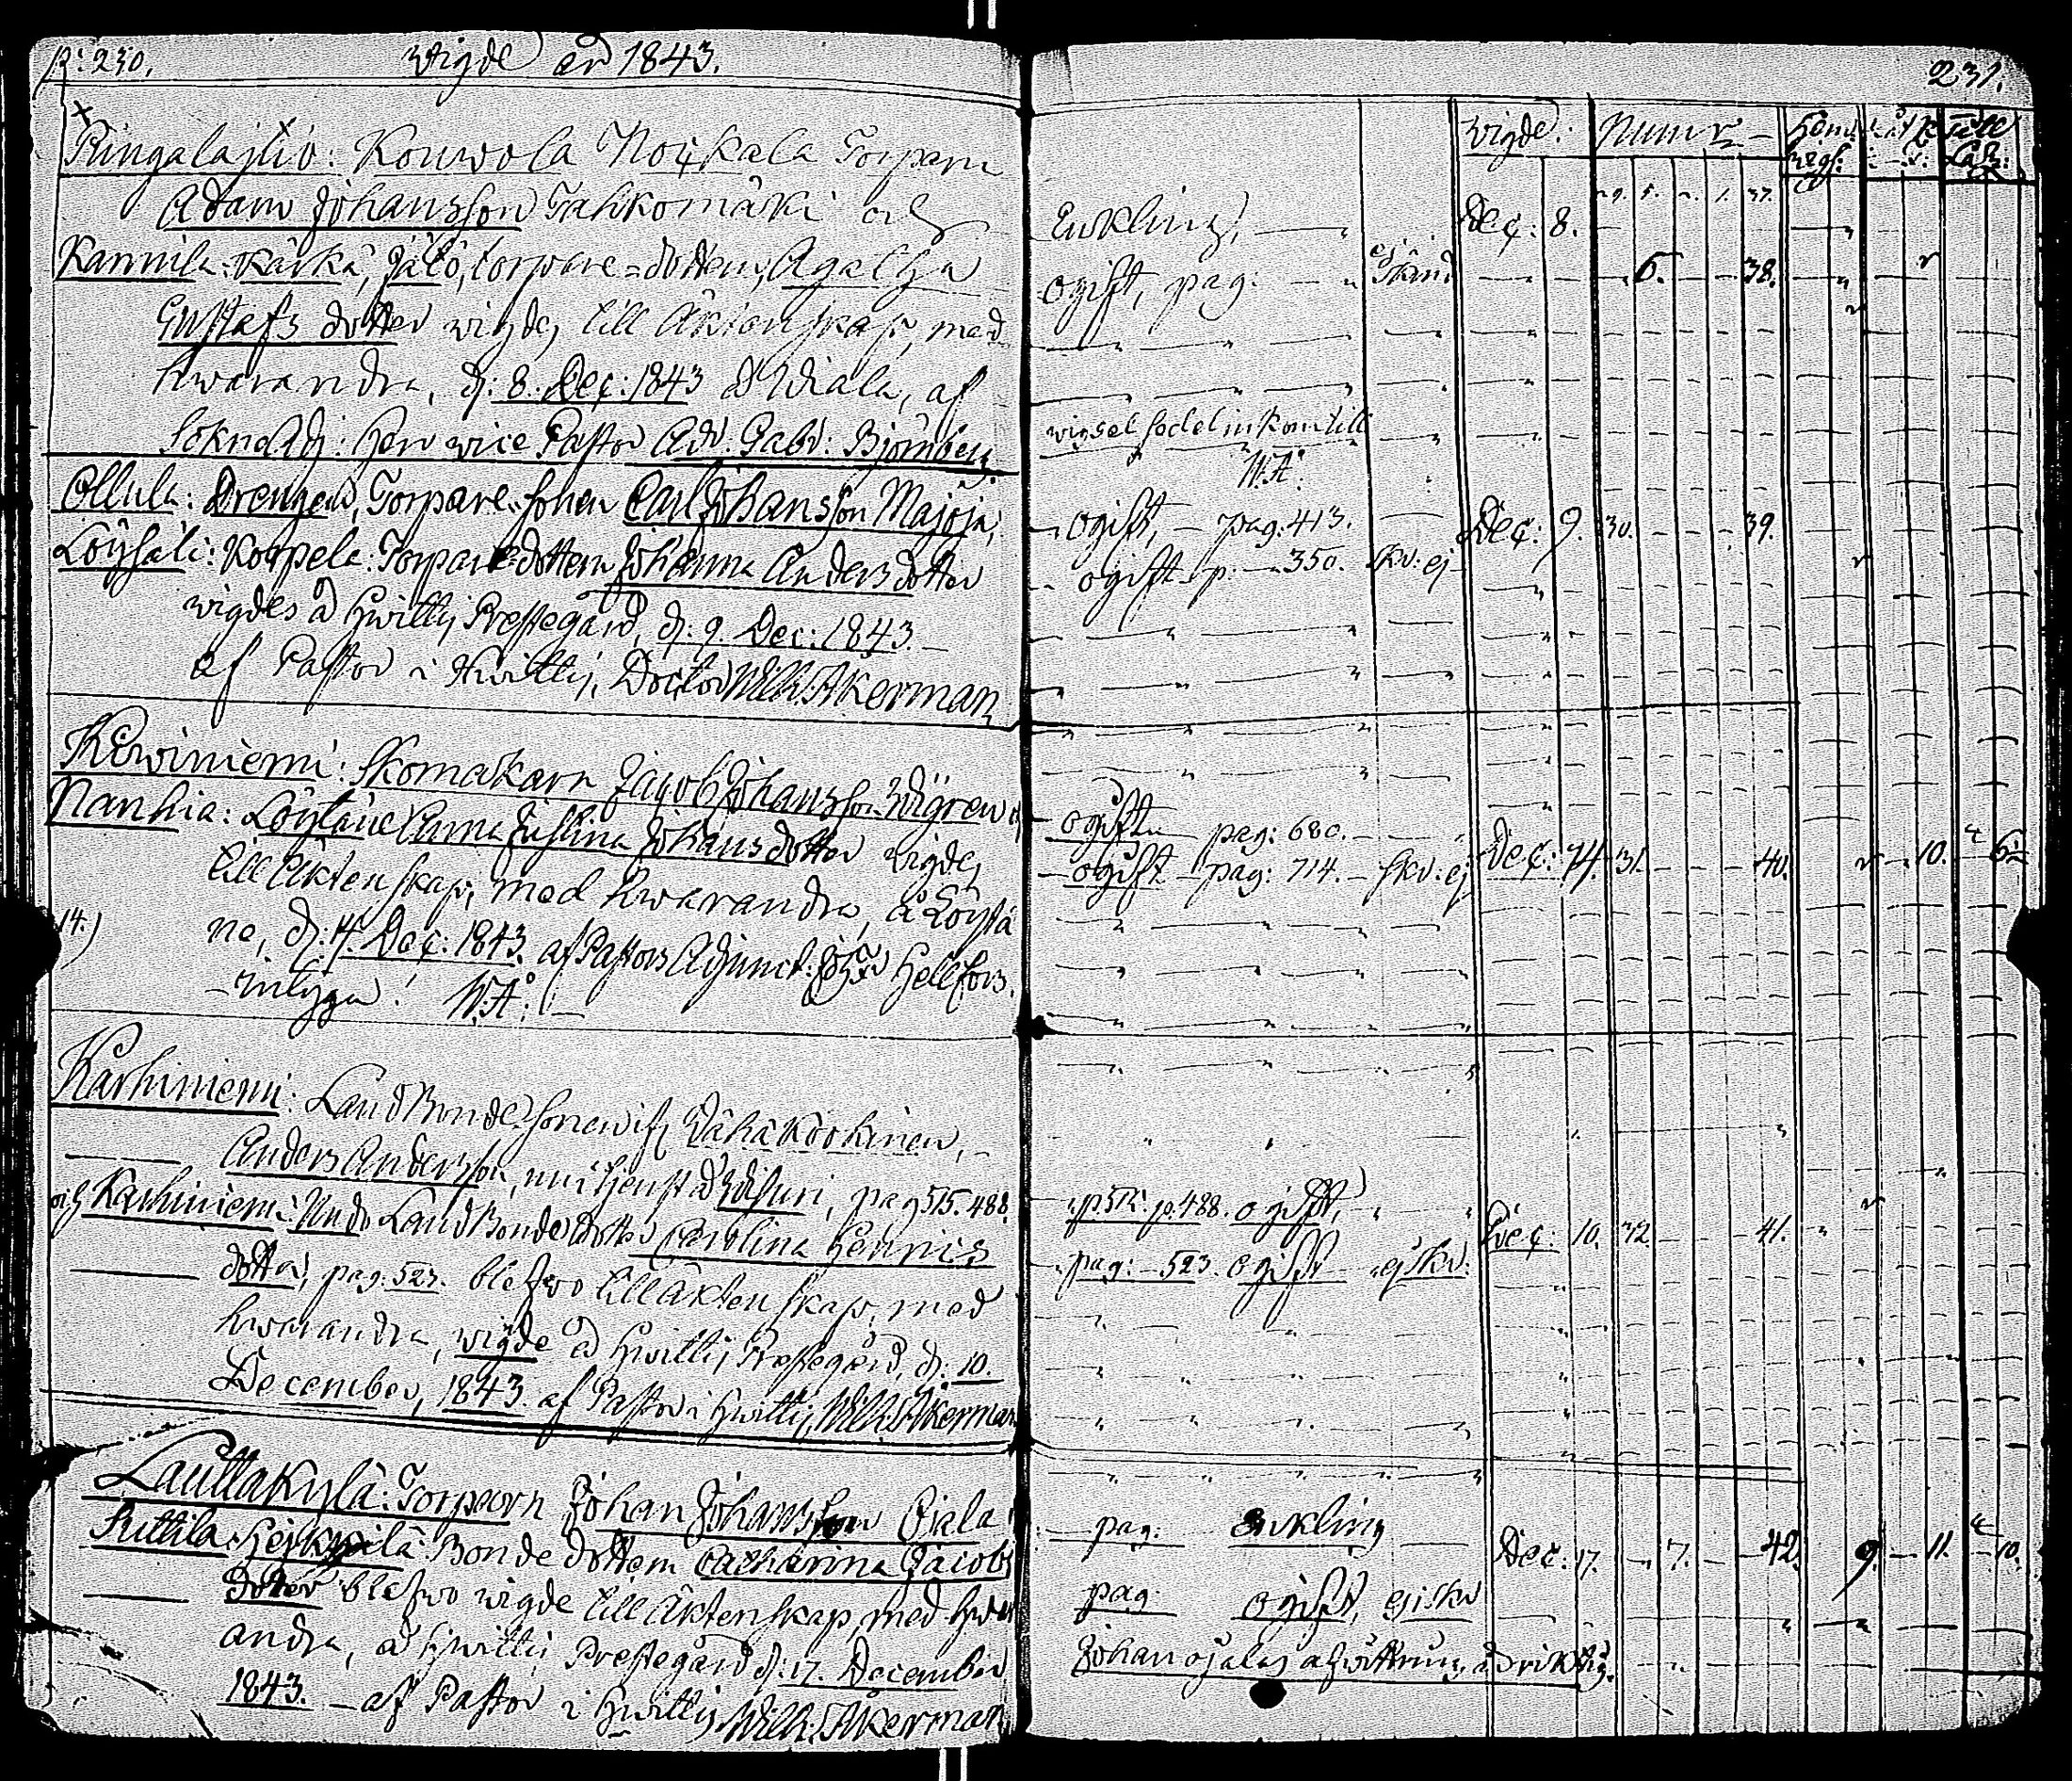 p: 230. Wigde år 1843.
Pungalajtio: Kouwola Nockala Torparn
Adam Johansson Tahkomäki och
Kannila: Kärkä, Jalo, torpare=dottern, Agatha
Gustafs dotter wigde till Äktenskap, med
hwarandra, d: 8. Dec: 1843 å Widiala, af
SokneAdj: Herr vice Pastor Adr: Gabr: Björnberg.
Ollula: Drengen, Torpare=sonen Carl Johansson Majoja,
Löysäli: Korpela: Torparedottern Johanna Andersdotter
wigdes å Hwittis Prestegård, d: 9. Dec: 1843. —
af Pastor i Hwittis, Doctor Wilh: Åkerman
Kiwiniemi: Skomakarn Jacob Johansson Widgren o
Nanhia: Löytäne Anna Justina Johans dotter wigde,
till Äktenskap, med hwarandra, å Löytä
14.) ne, d: 14. Dec: 1843. af Pastors Adjunct: Hellfors.
– intyga! W.Å:
Karhiniemi: LandBondeSonen ifr Wähäkoohinen, –
Anders Andersson, nu i tjenst å Wisuri, pag 515. 488.
och Karhiniemi: Undo LandBonde dotter Carolina Henriks
dotter, pag: 523. blefwo till Äktenskap, med
hwarandra, wigde å Hwittis Prestegård, d: 10.
December, 1843. af Pastor i Hwittis, Wilh. Åkerman
Lauttakylä: Torparn Johan Johansson Ojala
Suttila Hejkkilä: Bonde dottern Catharina Jacobs
dotter blefwo wigde till Äktenskap, med hwar
andra, å Hwittis Prestegård d: 17. December
1843. – af Pastor i Hwittis Wilh. Åkerman
231.
Wigde: Numr –
Enkling, Dec: 8. 29. 5. 1. 37.
ogift, pag: ej skrind 6. 38.
wigsel sedel inkom till
W.Å:
ogift, – pag: 413. Dec: 9. 30. 39.
ogift – p: – 350. skr: ej
ogift pag: 680.
ogift – pag: 714. – skr: ej Dec: 14. 31. 40. 10. 6
p. 515. p. 488. ogift,
pag: – 523. ogift ej skr: Dec: 10. 32. 41.
pag: enkling
Dec: 17. 7. 42. 9. 11. 10.
pag: ogift, ej skr
Johan Ojalas afwittring, är riktig.